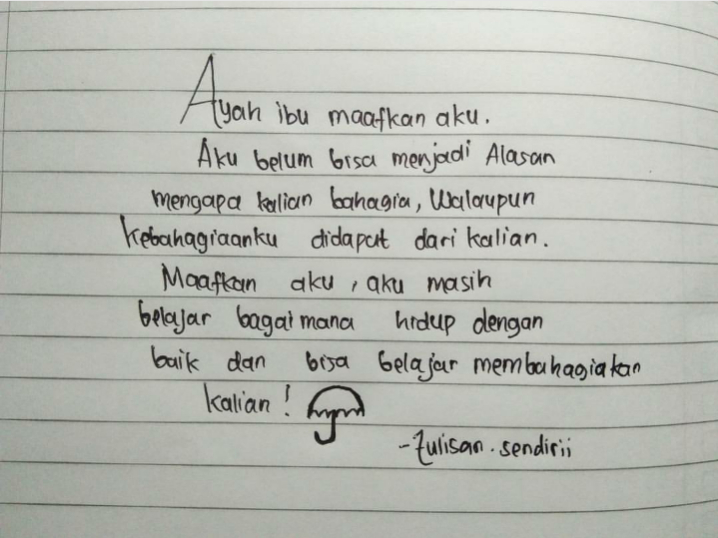 Ayah ibu maafkan aku.
Aku belum bisa menjadi Alasan
mengapa kalian bahagia, Walaupun
kebahagiaanku didapat dari kalian.
Maafkan aku, aku masih
belajar bagaimana hidup dengan
baik dan bisa belajar membahagiakan
kalian!
-tulisan.sendirii